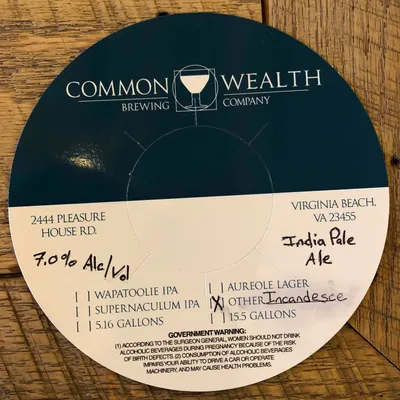 COMMON WEALTH
BREWING COMPANY
2444 PLEASURE
HOUSE RD.
VIRGINIA BEACH,
VA 23455
7.0% Alc/Vol
India Pale
Ale
[ ] WAPATOOLIE IPA
[ ] SUPERNACULUM IPA
[ ] 5.16 GALLONS
[ ] AUREOLE LAGER
[X] OTHER Incandesce
[ ] 15.5 GALLONS
GOVERNMENT WARNING:
(1) ACCORDING TO THE SURGEON GENERAL, WOMEN SHOULD NOT DRINK
ALCOHOLIC BEVERAGES DURING PREGNANCY BECAUSE OF THE RISK
OF BIRTH DEFECTS. (2) CONSUMPTION OF ALCOHOLIC BEVERAGES
IMPAIRS YOUR ABILITY TO DRIVE A CAR OR OPERATE
MACHINERY, AND MAY CAUSE HEALTH PROBLEMS.